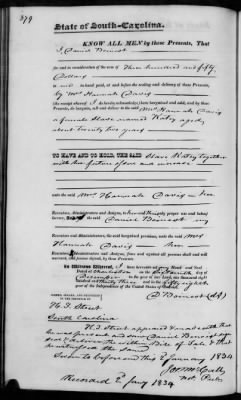 379
State of South-Carolina.
KNOW ALL MEN by these Presents, That
I, Daniel
for and in consideration of the sum of Three hundred and fifty
Dollars
to me in hand paid, at and before the sealing and delivery of these Presents,
by Mrs Hannah Davis
(the receipt whereof I do hereby acknowledge) have bargained and sold, and by these
Presents, do bargain, sell and deliver to the said Mrs Hannah Davis
a female slave named Katy aged
about twenty two years
TO HAVE AND TO HOLD, THE SAID Slave Katy together
with her future issue and increase
unto the said Mrs Hannah Davis her
Executors, Administrators and Assigns, to her and their only proper use and behoof,
forever. And I the said Daniel my
Executors, Administrators, the said bargained premises, unto the said Mrs
Hannah Davis her
Executors, Administrators and Assigns, from and against all persons shall and will
warrant, and forever defend, by these Presents.
In Witness Whereof, I have hereunto set my Hand and Seal
Dated at Charleston on the
December in the year of our Lord, one thousand eight
hundred and thirty three and in the fifty eighth
year of the Independence of the United States of America.
SIGNED, SEALED, AND DELIVERED
IN THE PRESENCE OF
H. J. Street
South Carolina
H. J. Street appeared & made oath that
he was present and saw Daniel
seal & deliver the within Bill of Sale & that
he witnessed the same
Sworn to before me this 2 January 1834
Not. Pub.
Recorded 2d Jany 1834